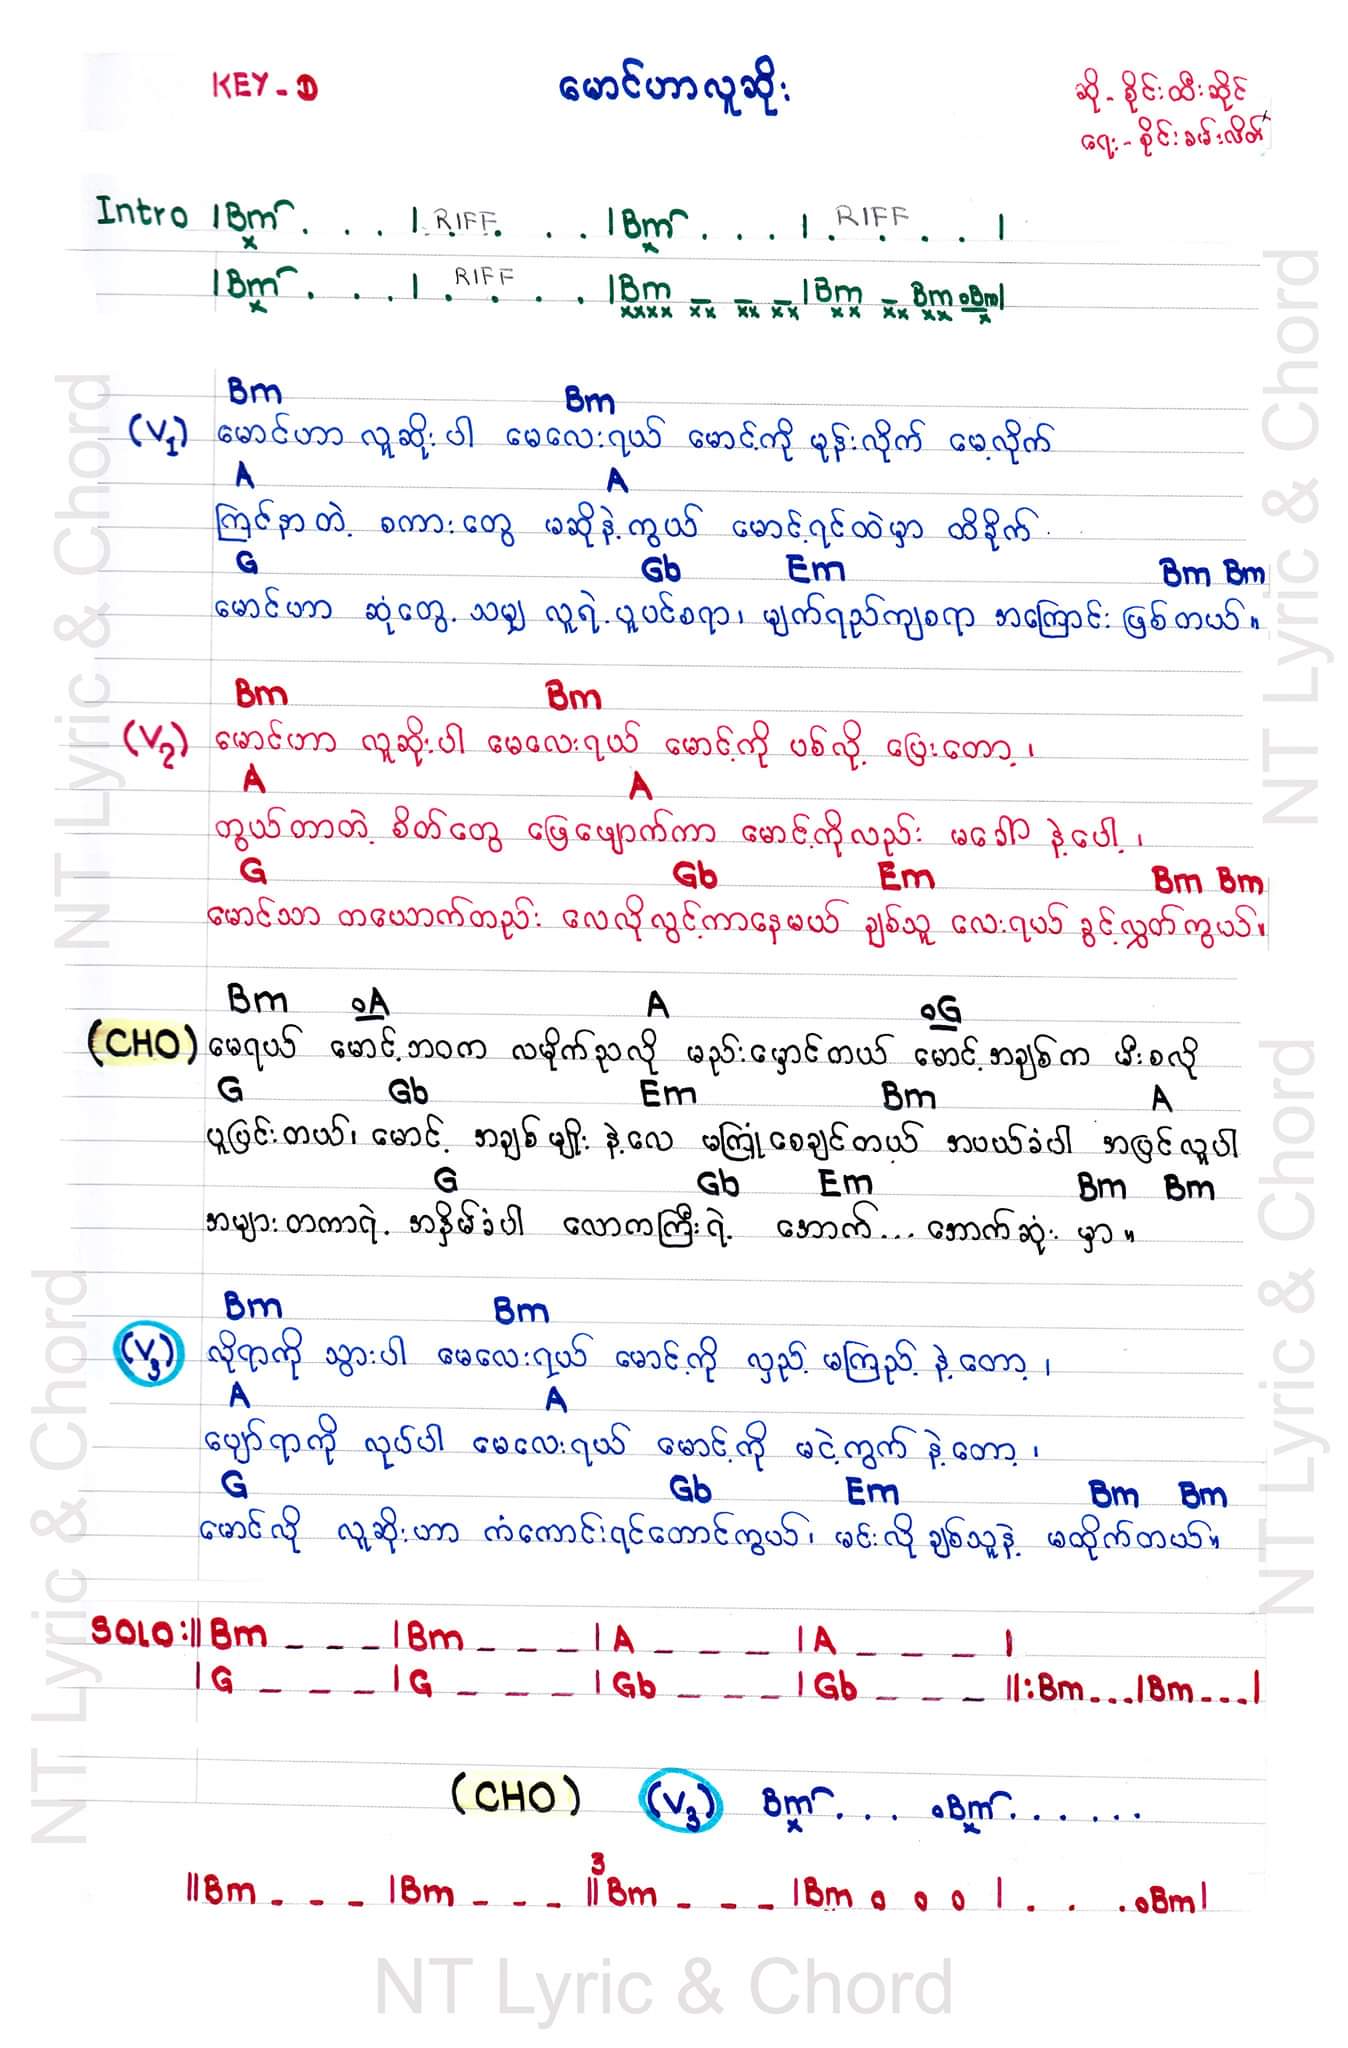 KEY - D
မောင်ဟာလူဆိုး
ဆို - စိုင်းထီးဆိုင်
ရေး - စိုင်းခမ်းလိတ်
Intro | Bm . . . | . RIFF . . . | Bm . . . | . RIFF . . . |
| Bm . . . | . RIFF . . . | Bm _ _ _ | Bm _ Bm oBm |
Bm Bm
(V1) မောင်ဟာ လူဆိုးပါ မေလေးရယ် မောင့်ကို မုန်းလိုက် မေ့လိုက်
A A
ကြင်နာတဲ့ စကားတွေ မဆိုနဲ့ကွယ် မောင့်ရင်ထဲမှာ ထိခိုက်
G Gb Em Bm Bm
မောင်ဟာ ဆုံတွေ့သမျှ လူရဲ့ပူပင်စရာ၊ မျက်ရည်ကျစရာ အကြောင်း ဖြစ်တယ်။
Bm Bm
(V2) မောင်ဟာ လူဆိုးပါ မေလေးရယ် မောင့်ကို ပစ်လို့ ပြေးတော့၊
A A
တွယ်တာတဲ့ စိတ်တွေ ဖြေဖျောက်ကာ မောင့်ကိုလည်း မခေါ်နဲ့ပေါ့၊
G Gb Em Bm Bm
မောင်သာ တယောက်တည်း လေလိုလွင့်ကာနေမယ် ချစ်သူ လေးရယ် ခွင့်လွှတ်ကွယ်။
Bm oA A oG
(CHO) မေရယ် မောင့်ဘဝက လမိုက်ညလို မည်းမှောင်တယ် မောင့်အချစ်က မီးစလို
G Gb Em Bm A
ပူပြင်းတယ်၊ မောင့် အချစ်မျိုး နဲ့လေ မကြုံစေချင်တယ် အပယ်ခံပါ အပြင်လူပါ
G Gb Em Bm Bm
အများတကာရဲ့ အနှိမ်ခံပါ လောကကြီးရဲ့ အောက်... အောက်ဆုံး မှာ။
Bm Bm
(V3) လိုရာကို သွားပါ မေလေးရယ် မောင့်ကို လှည့် မကြည့် နဲ့တော့၊
A A
ပျော်ရာကို လုပ်ပါ မေလေးရယ် မောင့်ကို မငဲ့ကွက် နဲ့တော့၊
G Gb Em Bm Bm
မောင်လို လူဆိုးဟာ ကံကောင်းရင်တောင်ကွယ်၊ မင်းလို ချစ်သူနဲ့ မထိုက်တယ်။
SOLO :|| Bm _ _ _ | Bm _ _ _ | A _ _ _ | A _ _ _ |
| G _ _ _ | G _ _ _ | Gb _ _ _ | Gb _ _ _ ||: Bm ... | Bm ... |
(CHO) (V3) Bm . . . oBm . . . . . .
|| Bm _ _ _ | Bm _ _ _ ||3 Bm _ _ _ | Bm o o o | . . . oBm |
NT Lyric & Chord
NT Lyric & Chord
NT Lyric & Chord
NT Lyric & Chord
NT Lyric & Chord